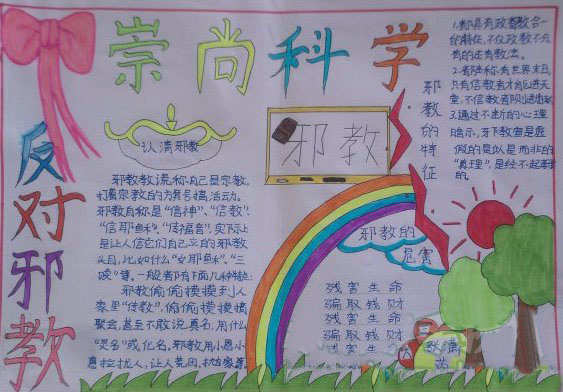 崇尚科学
反对邪教
认清邪教
邪教
邪教的特征
邪教的
危害
邪教教谎称自己是宗教,
打着宗教的为旗号搞活动。
邪教自称是“信神”、“信教”、
“信耶稣”、“传福音”,实际上
是让人信它们自己立的邪教
头目,比如什么“女耶稣”、“三
赎”等。一般都有下面几种特点:
邪教偷偷摸摸到人
家里“传教”,偷偷摸摸搞
聚会,甚至不敢说真名,用什么
“灵名”或化名,邪教用小恩小
惠拉拢人,让人荒田,
残害生命
骗取钱财
残害生命
骗取钱财
残害生命
1.都具有政教合一
的特征,不仅政教不分
有的还有教法。
2.都宣称有世界末日,
只有信教者才能进天
堂,不信教者则进地狱
3.通过不断的心理
暗示,牙下教督是虚
假的是似是而非的
“真理”,是经不起事实
的。